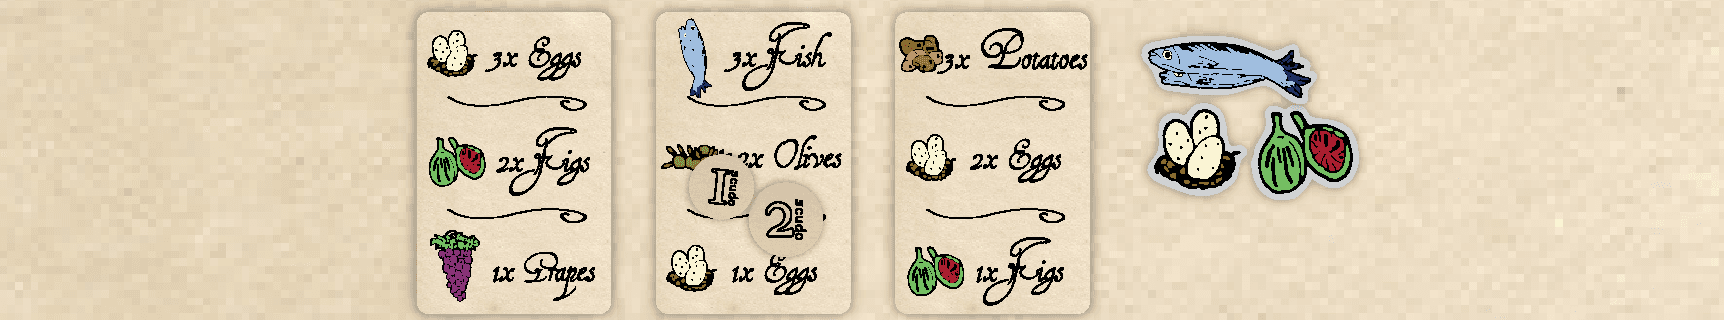 3x Eggs
2x Figs
1x Grapes
3x Fish
2x Olives
1 scudo
2 scudo
1x Eggs
3x Potatoes
2x Eggs
1x Figs